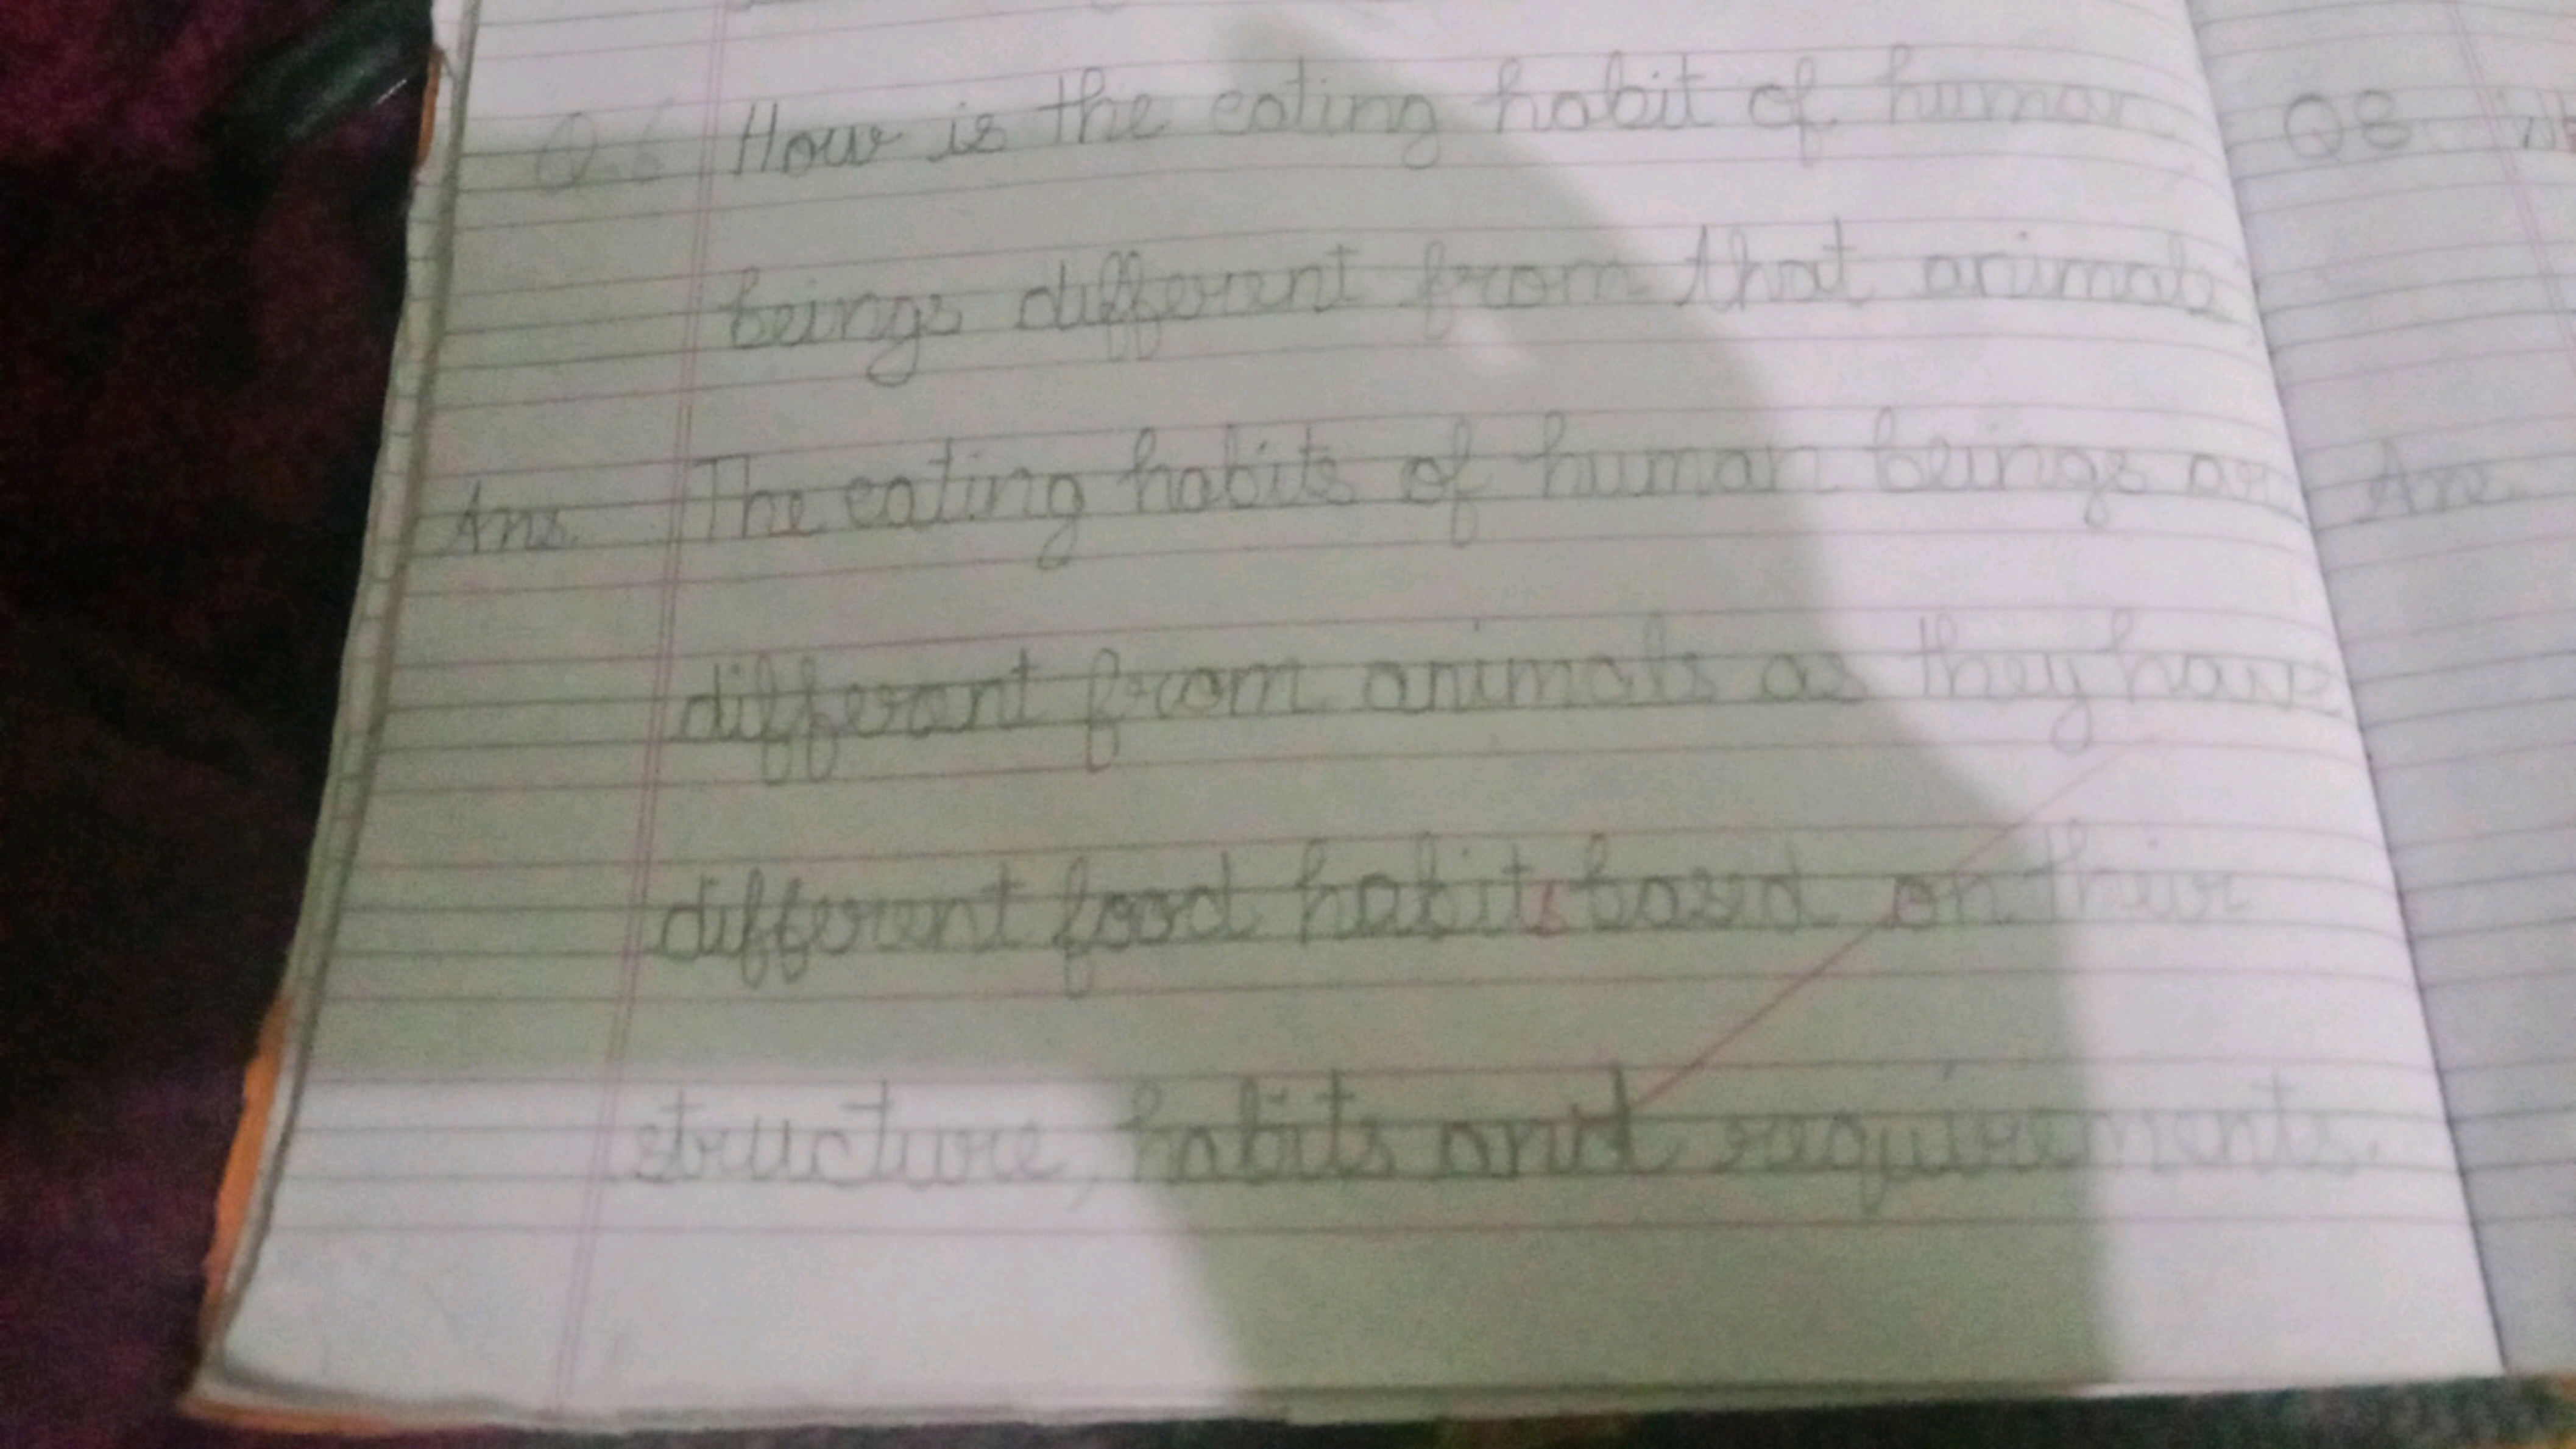 Q.6 How is the eating habit of human
beings different from that animals
Ans. The eating habits of human beings are
different from animals as they have
different food habits based on their
structure, habits and requirements.
Q8
Ans.